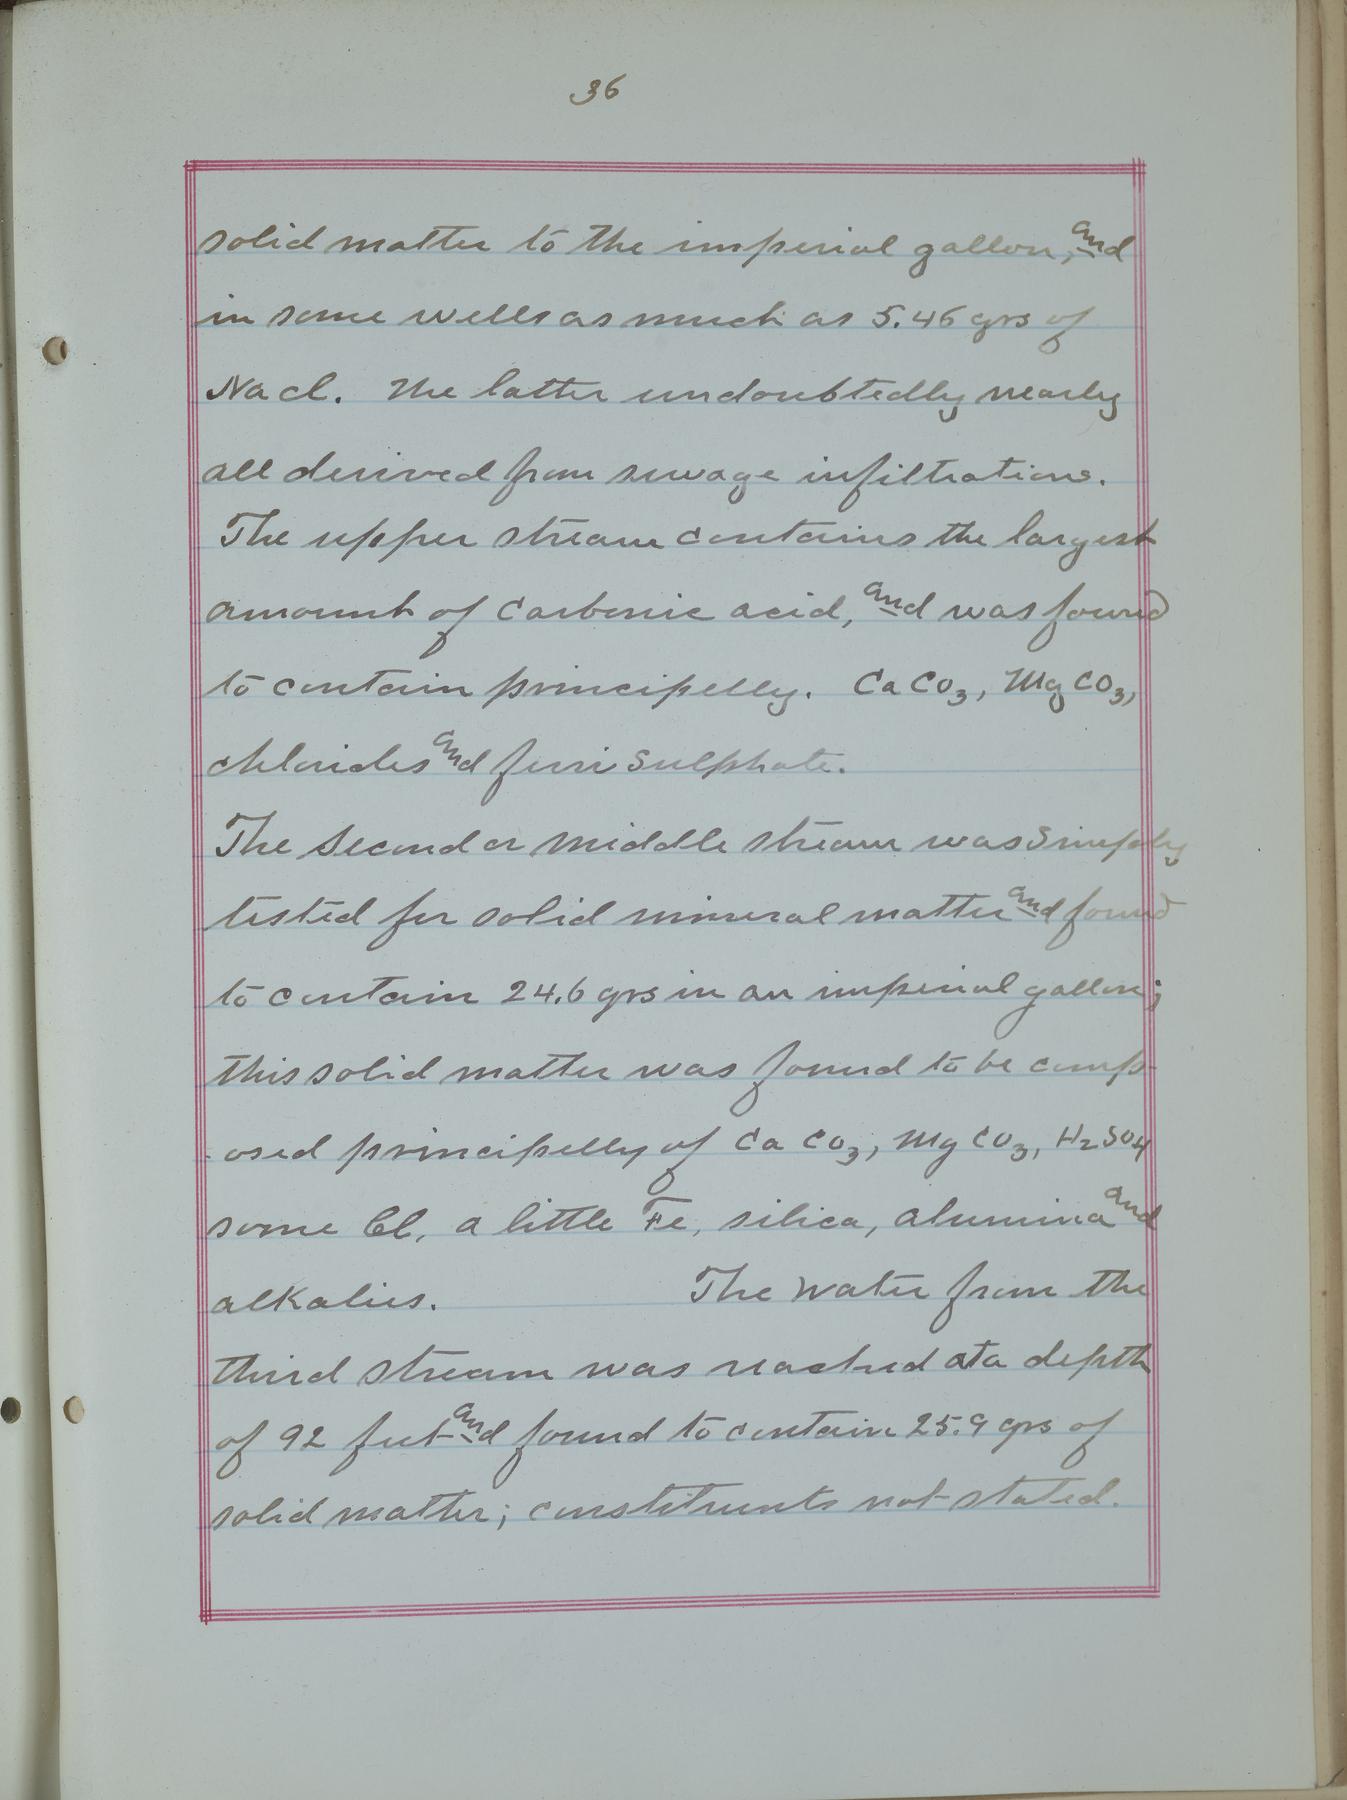 36
solid matter to the imperial gallon, and
in some wells as much as 5.46 grs of
Na cl. The latter undoubtedly nearly
all derived from sewage infiltrations.
The upper stream contains the largest
amount of Carbonic acid, and was found
to contain principelly. Ca CO3, Mg CO3,
chlorides and ferri Sulphate.
The Second or middle stream was Simply
tested for solid mineral matter and found
to contain 24.6 grs in an imperial gallon;
this solid matter was found to be comp-
-osed principelly of Ca CO3, Mg CO3, H2SO4
some Cl, a little Fe, silica, alumina and
alkalies. The water from the
third stream was reached at a depth
of 92 feet and found to contain 25.9 grs of
solid matter; constituents not stated.